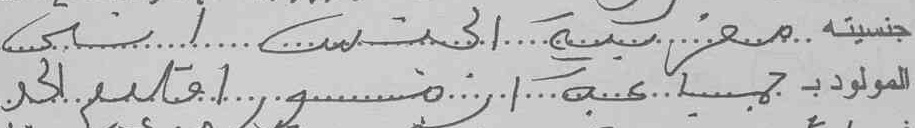 جنسيته مغربية الجنس انثى
المولود بـ جماعة ازنسور اقليم الحو